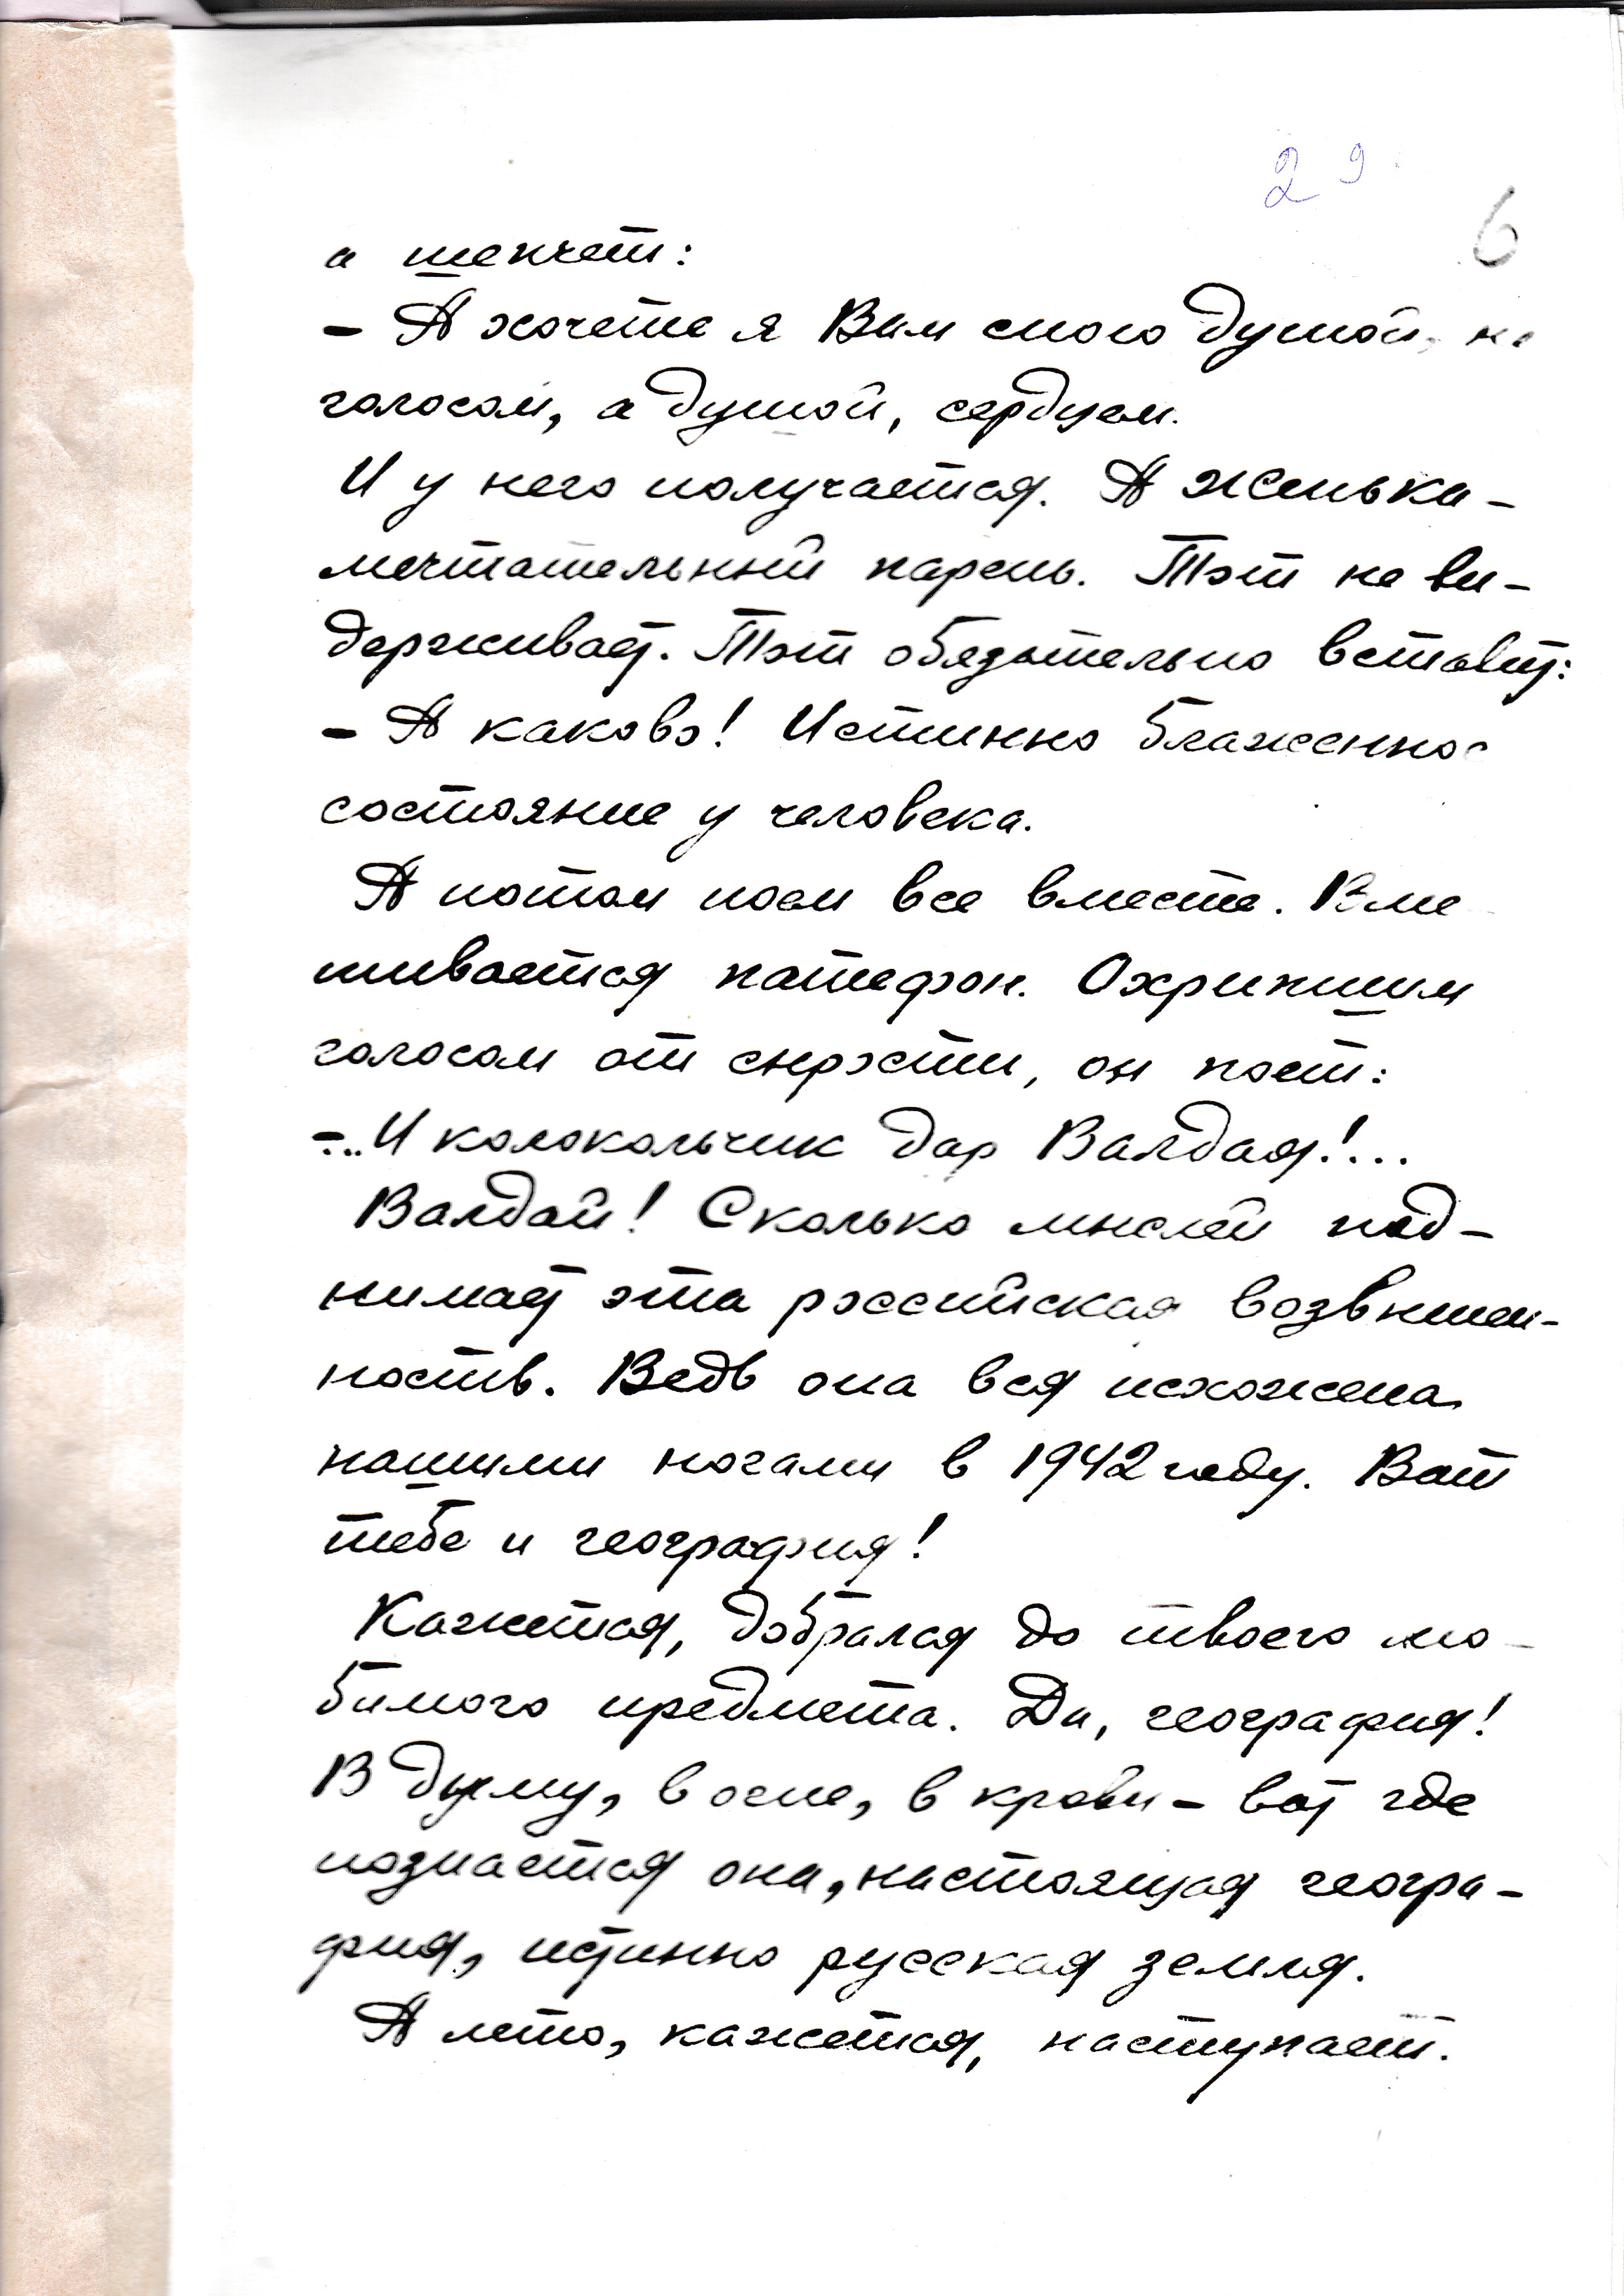 29
6
а шепчет:
– А хочете я Вам спою душой, не
голосом, а душой, сердцем.
И у него получается. А Женька –
мечтательный парень. Тот не вы-
держивает. Тот обязательно вставит:
– А каково! Истинно блаженное
состояние у человека.
А потом поем все вместе. Вме
шивается патефон. Охрипшим
голосом от сырости, он поет:
–...И колокольчик дар Валдая!...
Валдай! Сколько мыслей под-
нимает эта российская возвышен-
ность. Ведь она вся исхожена
нашими ногами в 1942 году. Вот
тебе и география!
Кажется, добрался до твоего лю-
бимого предмета. Да, география!
В дыму, в огне, в крови – вот где
познается она, настоящая геогра-
фия, истинно русская земля.
А лето, кажется, наступает.